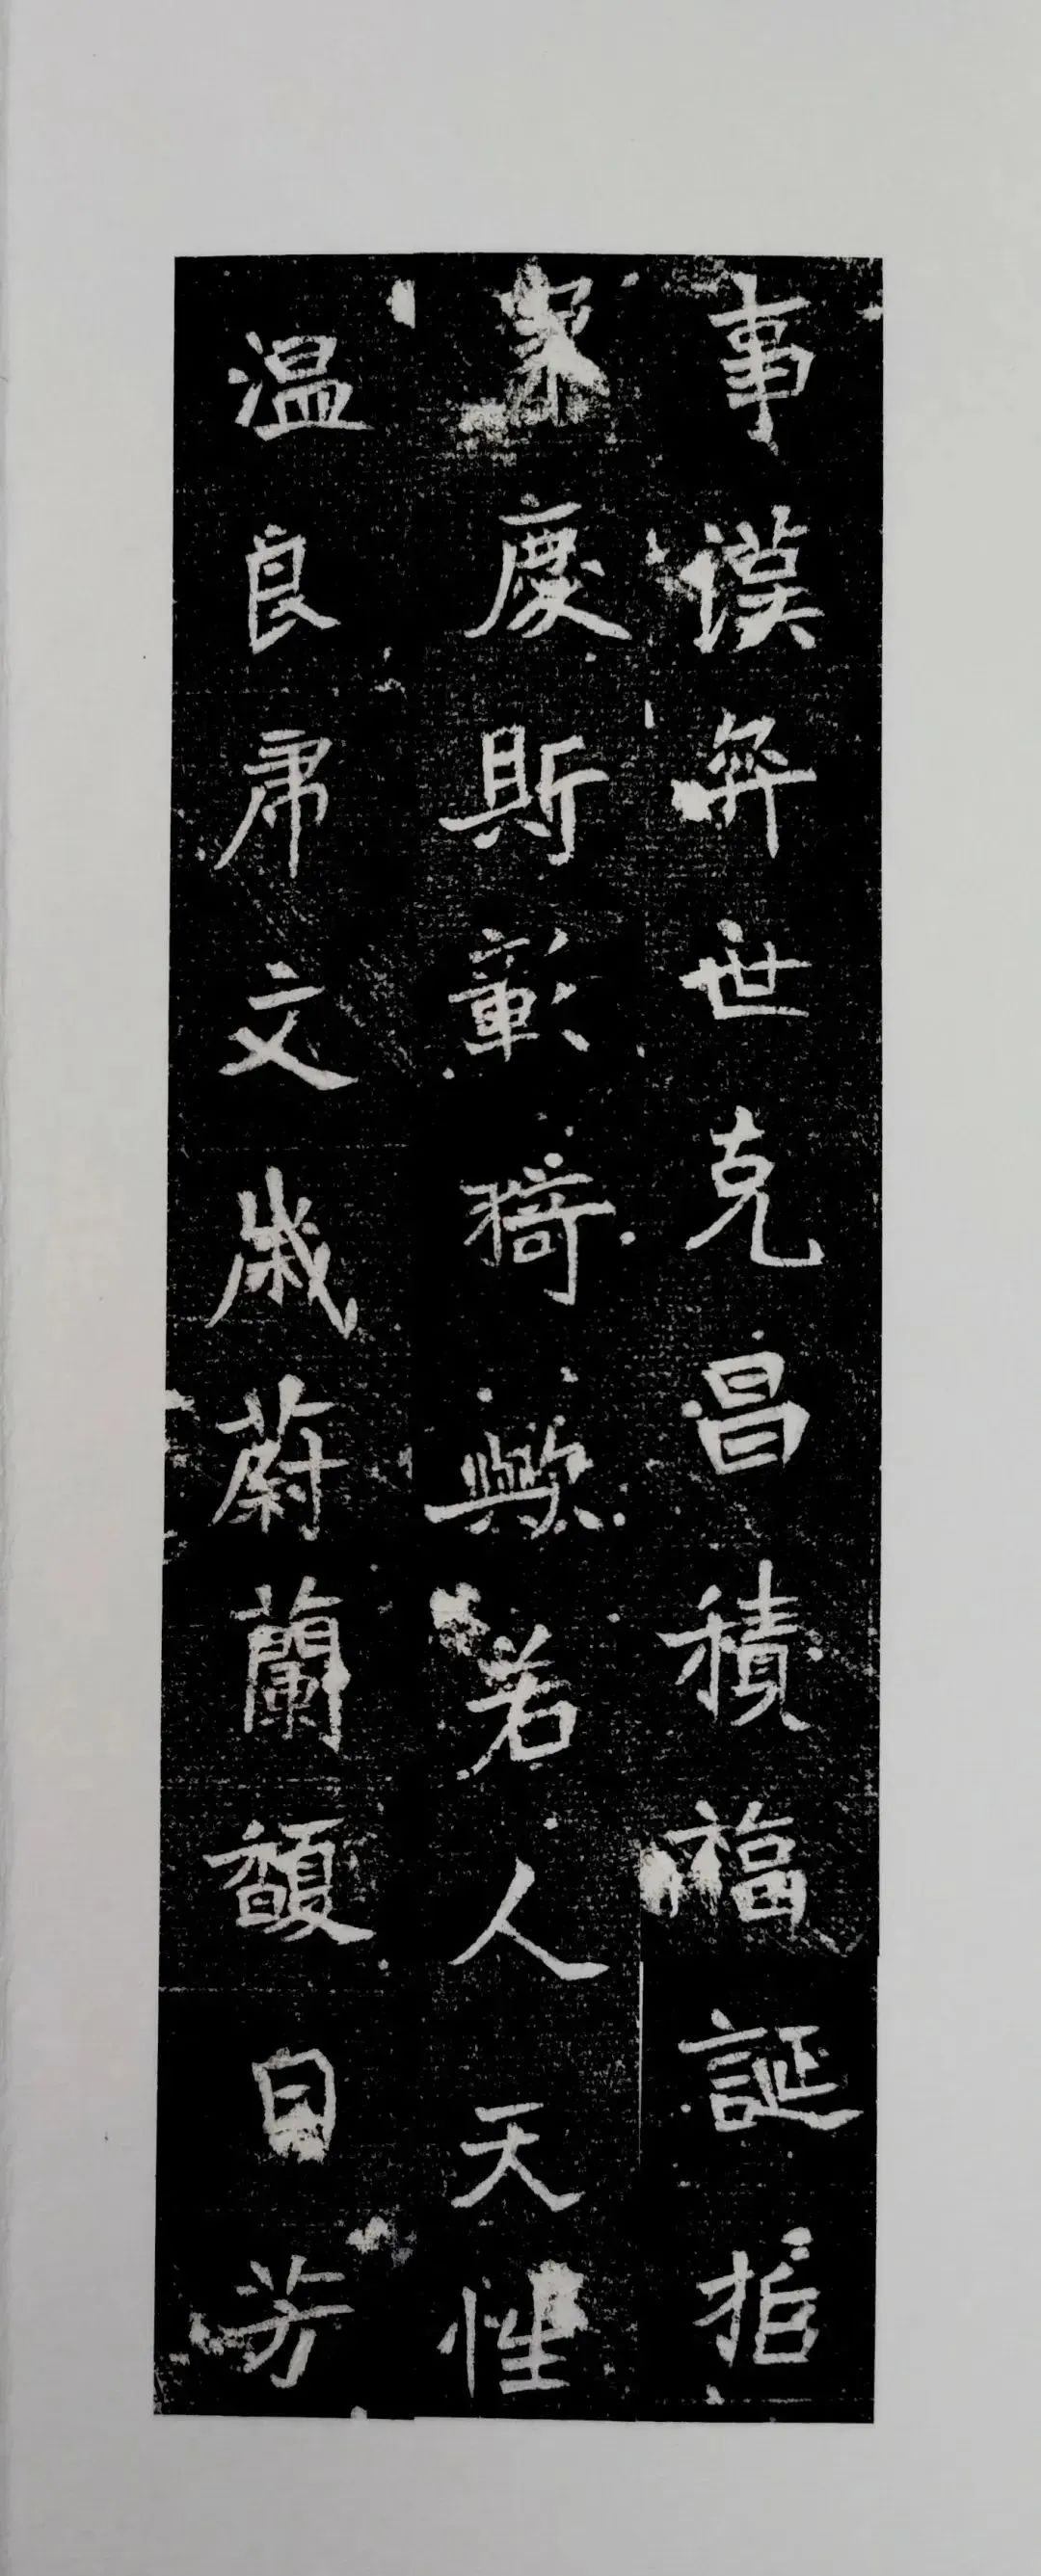 事漢弈世克昌積福誕指
家慶斯彰猗歟若人天性
温良虎文歲蔚蘭馥日芳